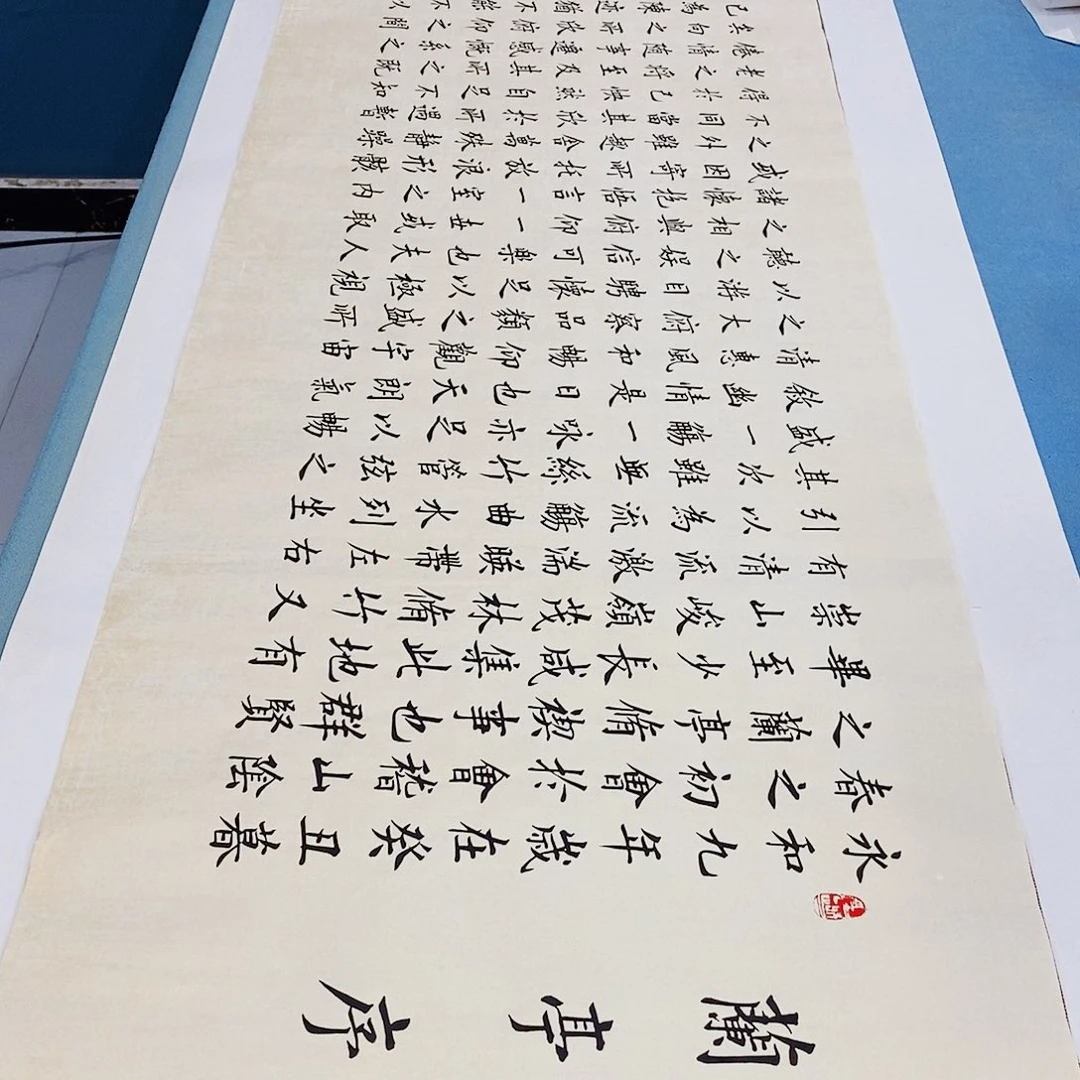 蘭亭序
永和九年歲在癸丑暮
春之初會於會稽山陰
之蘭亭脩禊事也群賢
畢至少長咸集此地有
崇山峻嶺茂林脩竹又
有清流激湍暎帶左右
引以為流觴曲水列坐
其次雖無絲竹管弦之
盛一觴一咏亦足以暢
敘幽情是日也天朗氣
清惠風和暢仰觀宇宙
之大俯察品類之盛所
以游目騁懷足以極視
聽之娛信可樂也夫人
之相與俯仰一世或取
諸懷抱悟言一室之內
或因寄所托放浪形骸
之外雖趣舍萬殊靜躁
不同當其欣於所遇暫
得於己快然自足不知
老之將至及其所之既
倦情隨事遷感慨係之
矣向之所欣俯仰之間
已為陳迹猶不不以